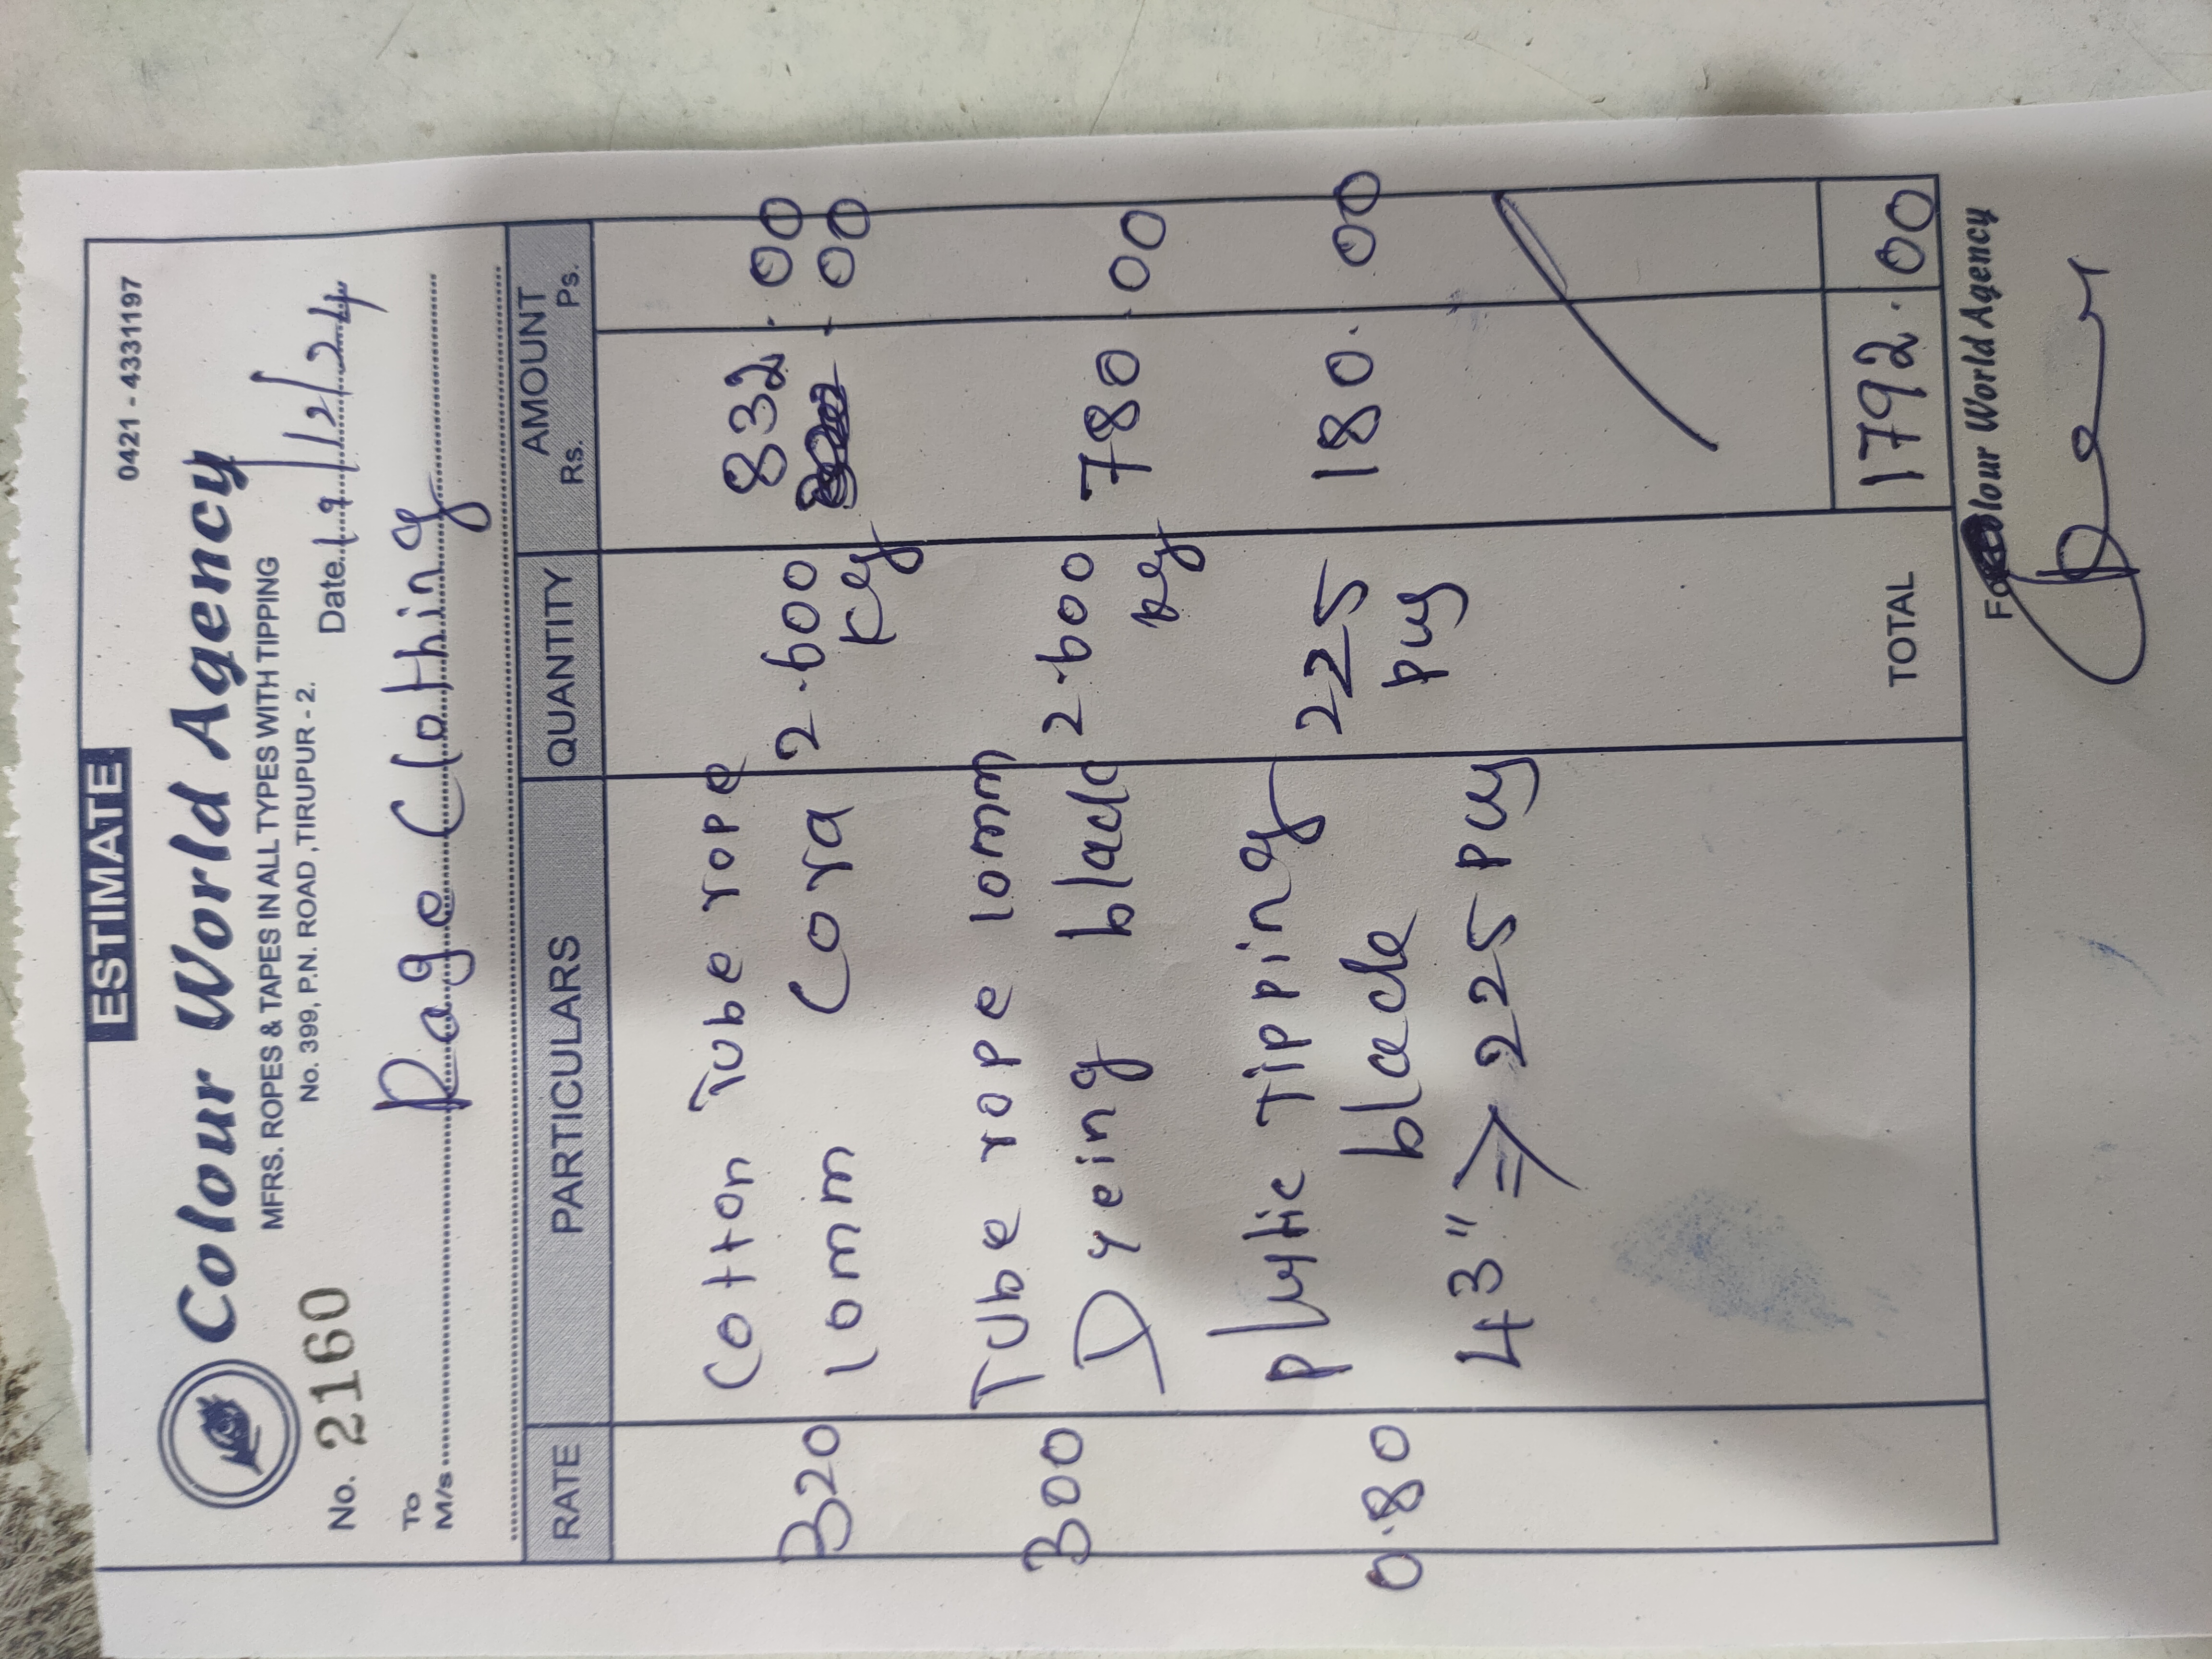 ESTIMATE
0421 - 4331197
Colour World Agency
MFRS. ROPES & TAPES IN ALL TYPES WITH TIPPING
No. 399, P.N. ROAD ,TIRUPUR - 2.
No. 2160
Date. 19/12/24
To
M/s Rage Clothing
RATE PARTICULARS QUANTITY AMOUNT
Rs. Ps.
Cotton Tube rope 832. 00
320 10mm Cora 2.600 00
Kg
Tube rope 10mm
300 Dyeing black 2.600 780.00
kg
plastic Tipping 225
0.80 black pcs 180. 00
43" => 225 pcs
TOTAL 1792.00
For Colour World Agency